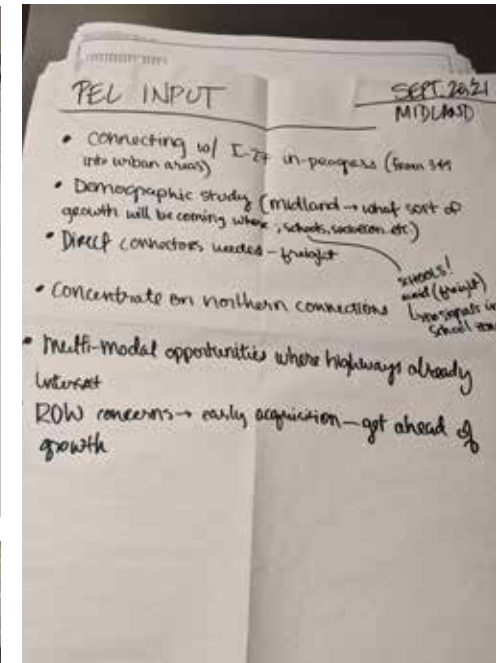 PEL INPUT
SEPT. 2021
MIDLAND
• Connecting w/ I-27 in-progress (from 349
into urban areas)
• Demographic study (midland → what sort of
growth will be coming where, schools, socioecon. etc)
• Direct connectors needed - freight
SCHOOLS!
and (freight)
in
School zone
• Concentrate on northern connections
• Multi-modal opportunities where highways already
interset
ROW concerns → early acquisition — get ahead of
growth